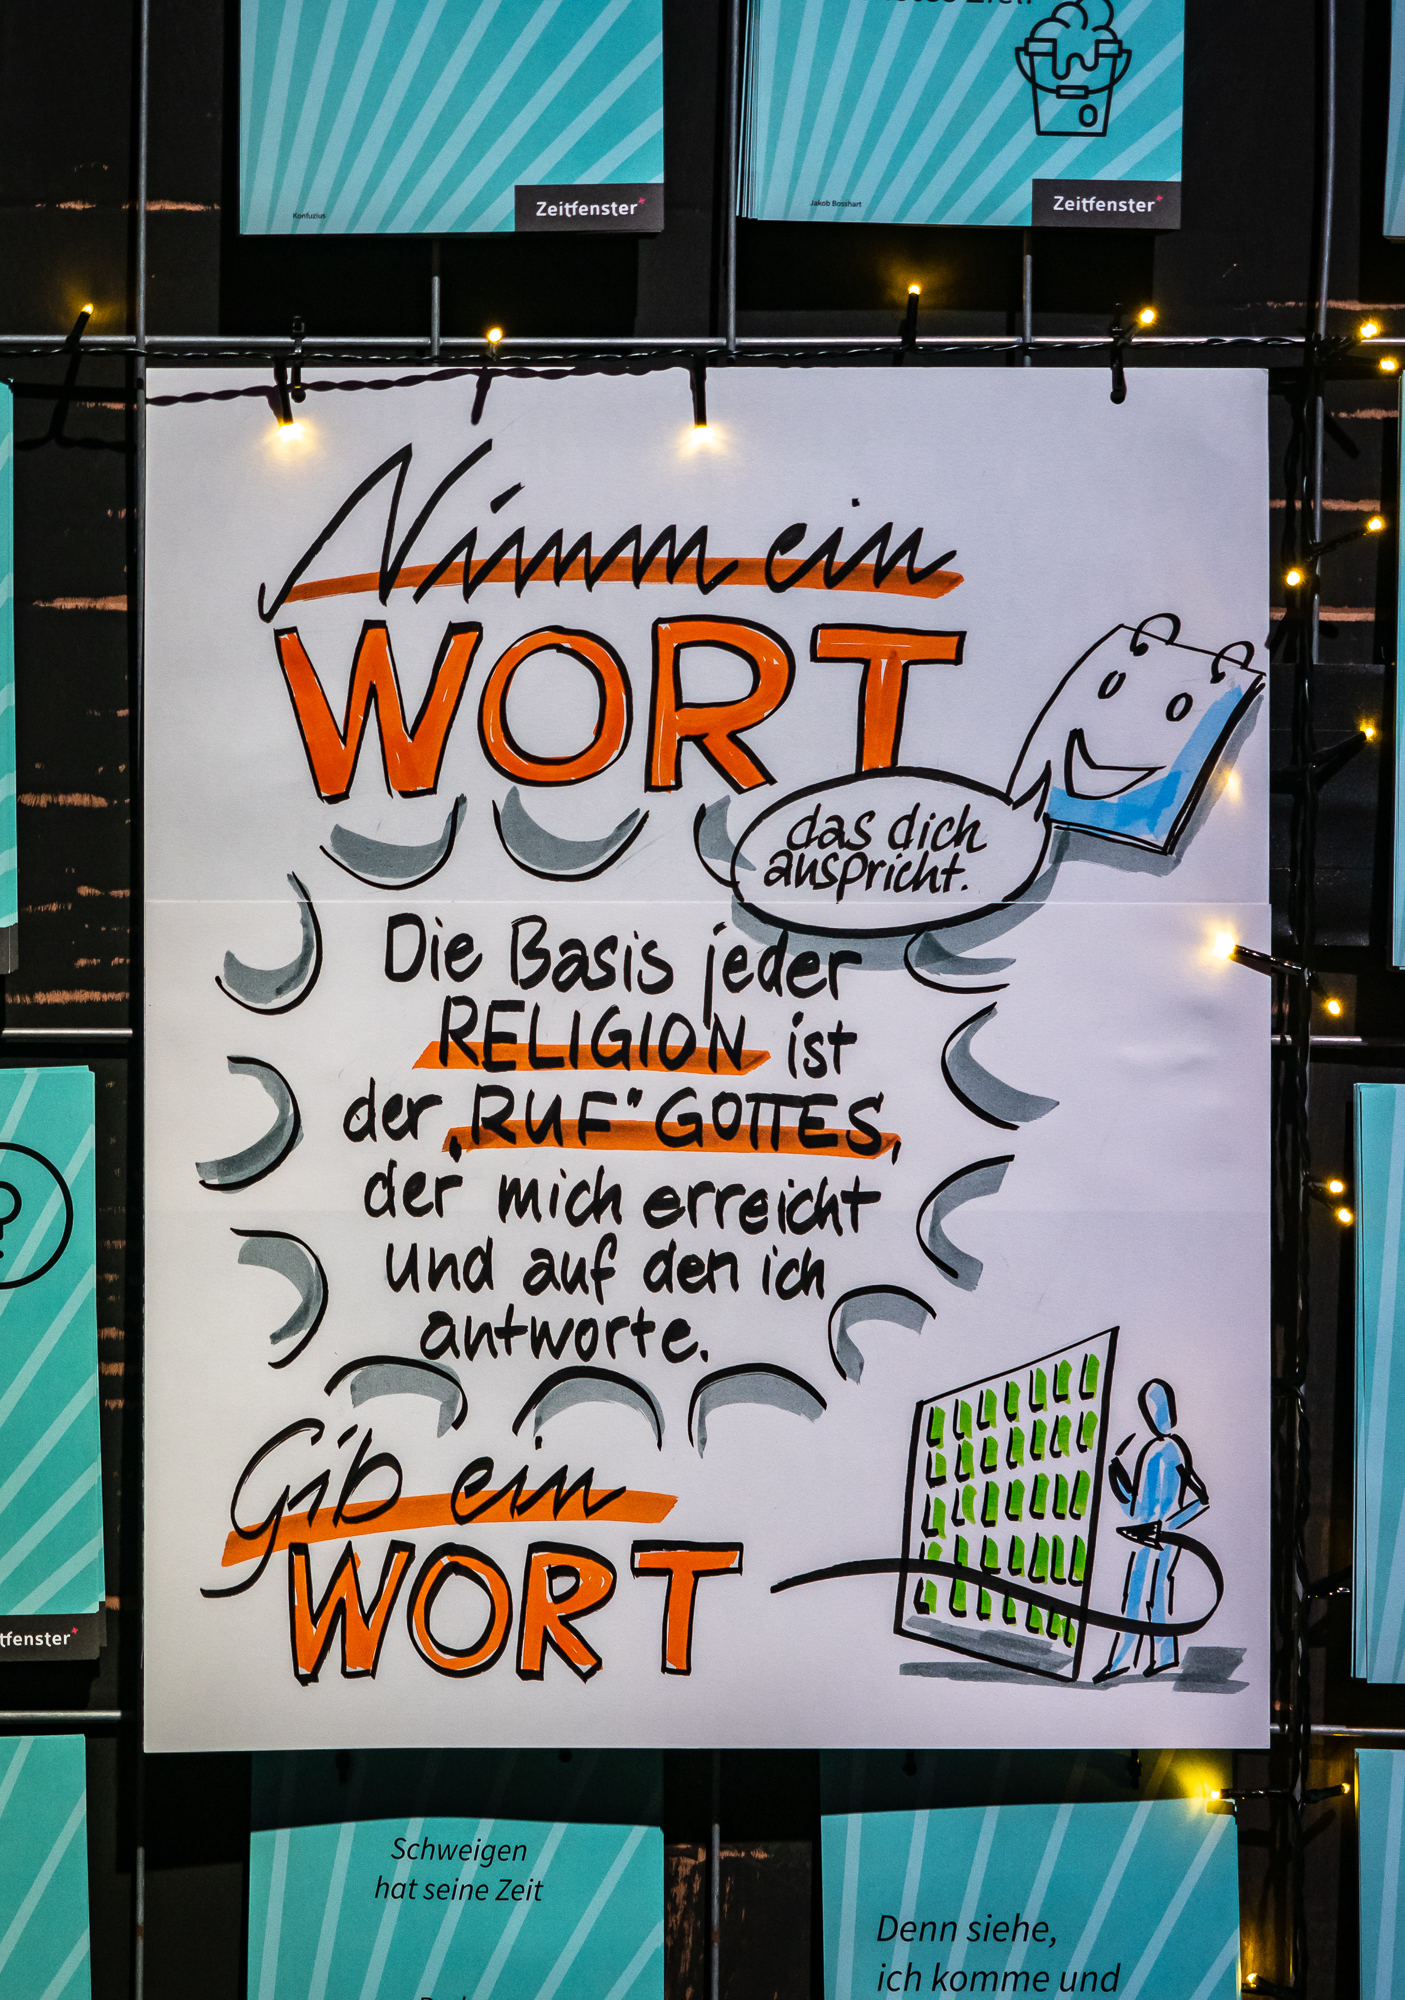 Konfuzius
Zeitfenster
Jakob Bosshart
Zeitfenster
Nimm ein
WORT
das dich
anspricht.
Die Basis jeder
RELIGION ist
der „RUF" GOTTES,
der mich erreicht
und auf den ich
antworte.
Gib ein
WORT
tfenster
Schweigen
hat seine Zeit
Denn siehe,
ich komme und